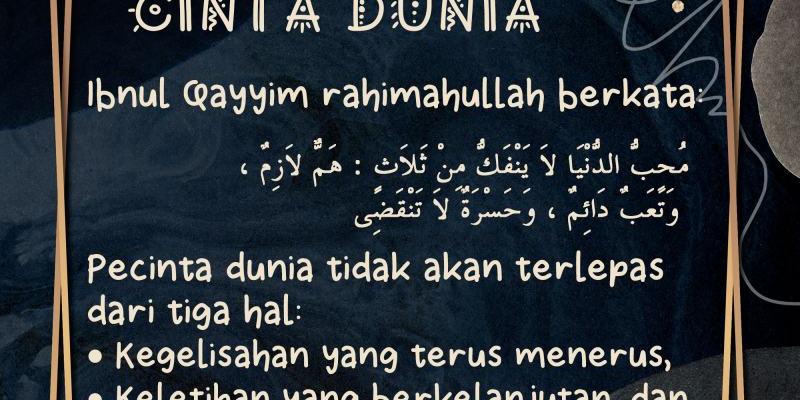 CINTA DUNIA
Ibnul Qayyim rahimahullah berkata:
مُحِبُّ الدُّنْيَا لاَ يَنْفَكُّ مِنْ ثَلاَثٍ : هَمٌّ لاَزِمٌ ،
وَتَعَبٌ دَائِمٌ ، وَحَسْرَةٌ لاَ تَنْقَضِى
Pecinta dunia tidak akan terlepas
dari tiga hal:
• Kegelisahan yang terus menerus,
• Keletihan yang berkelanjutan, dan